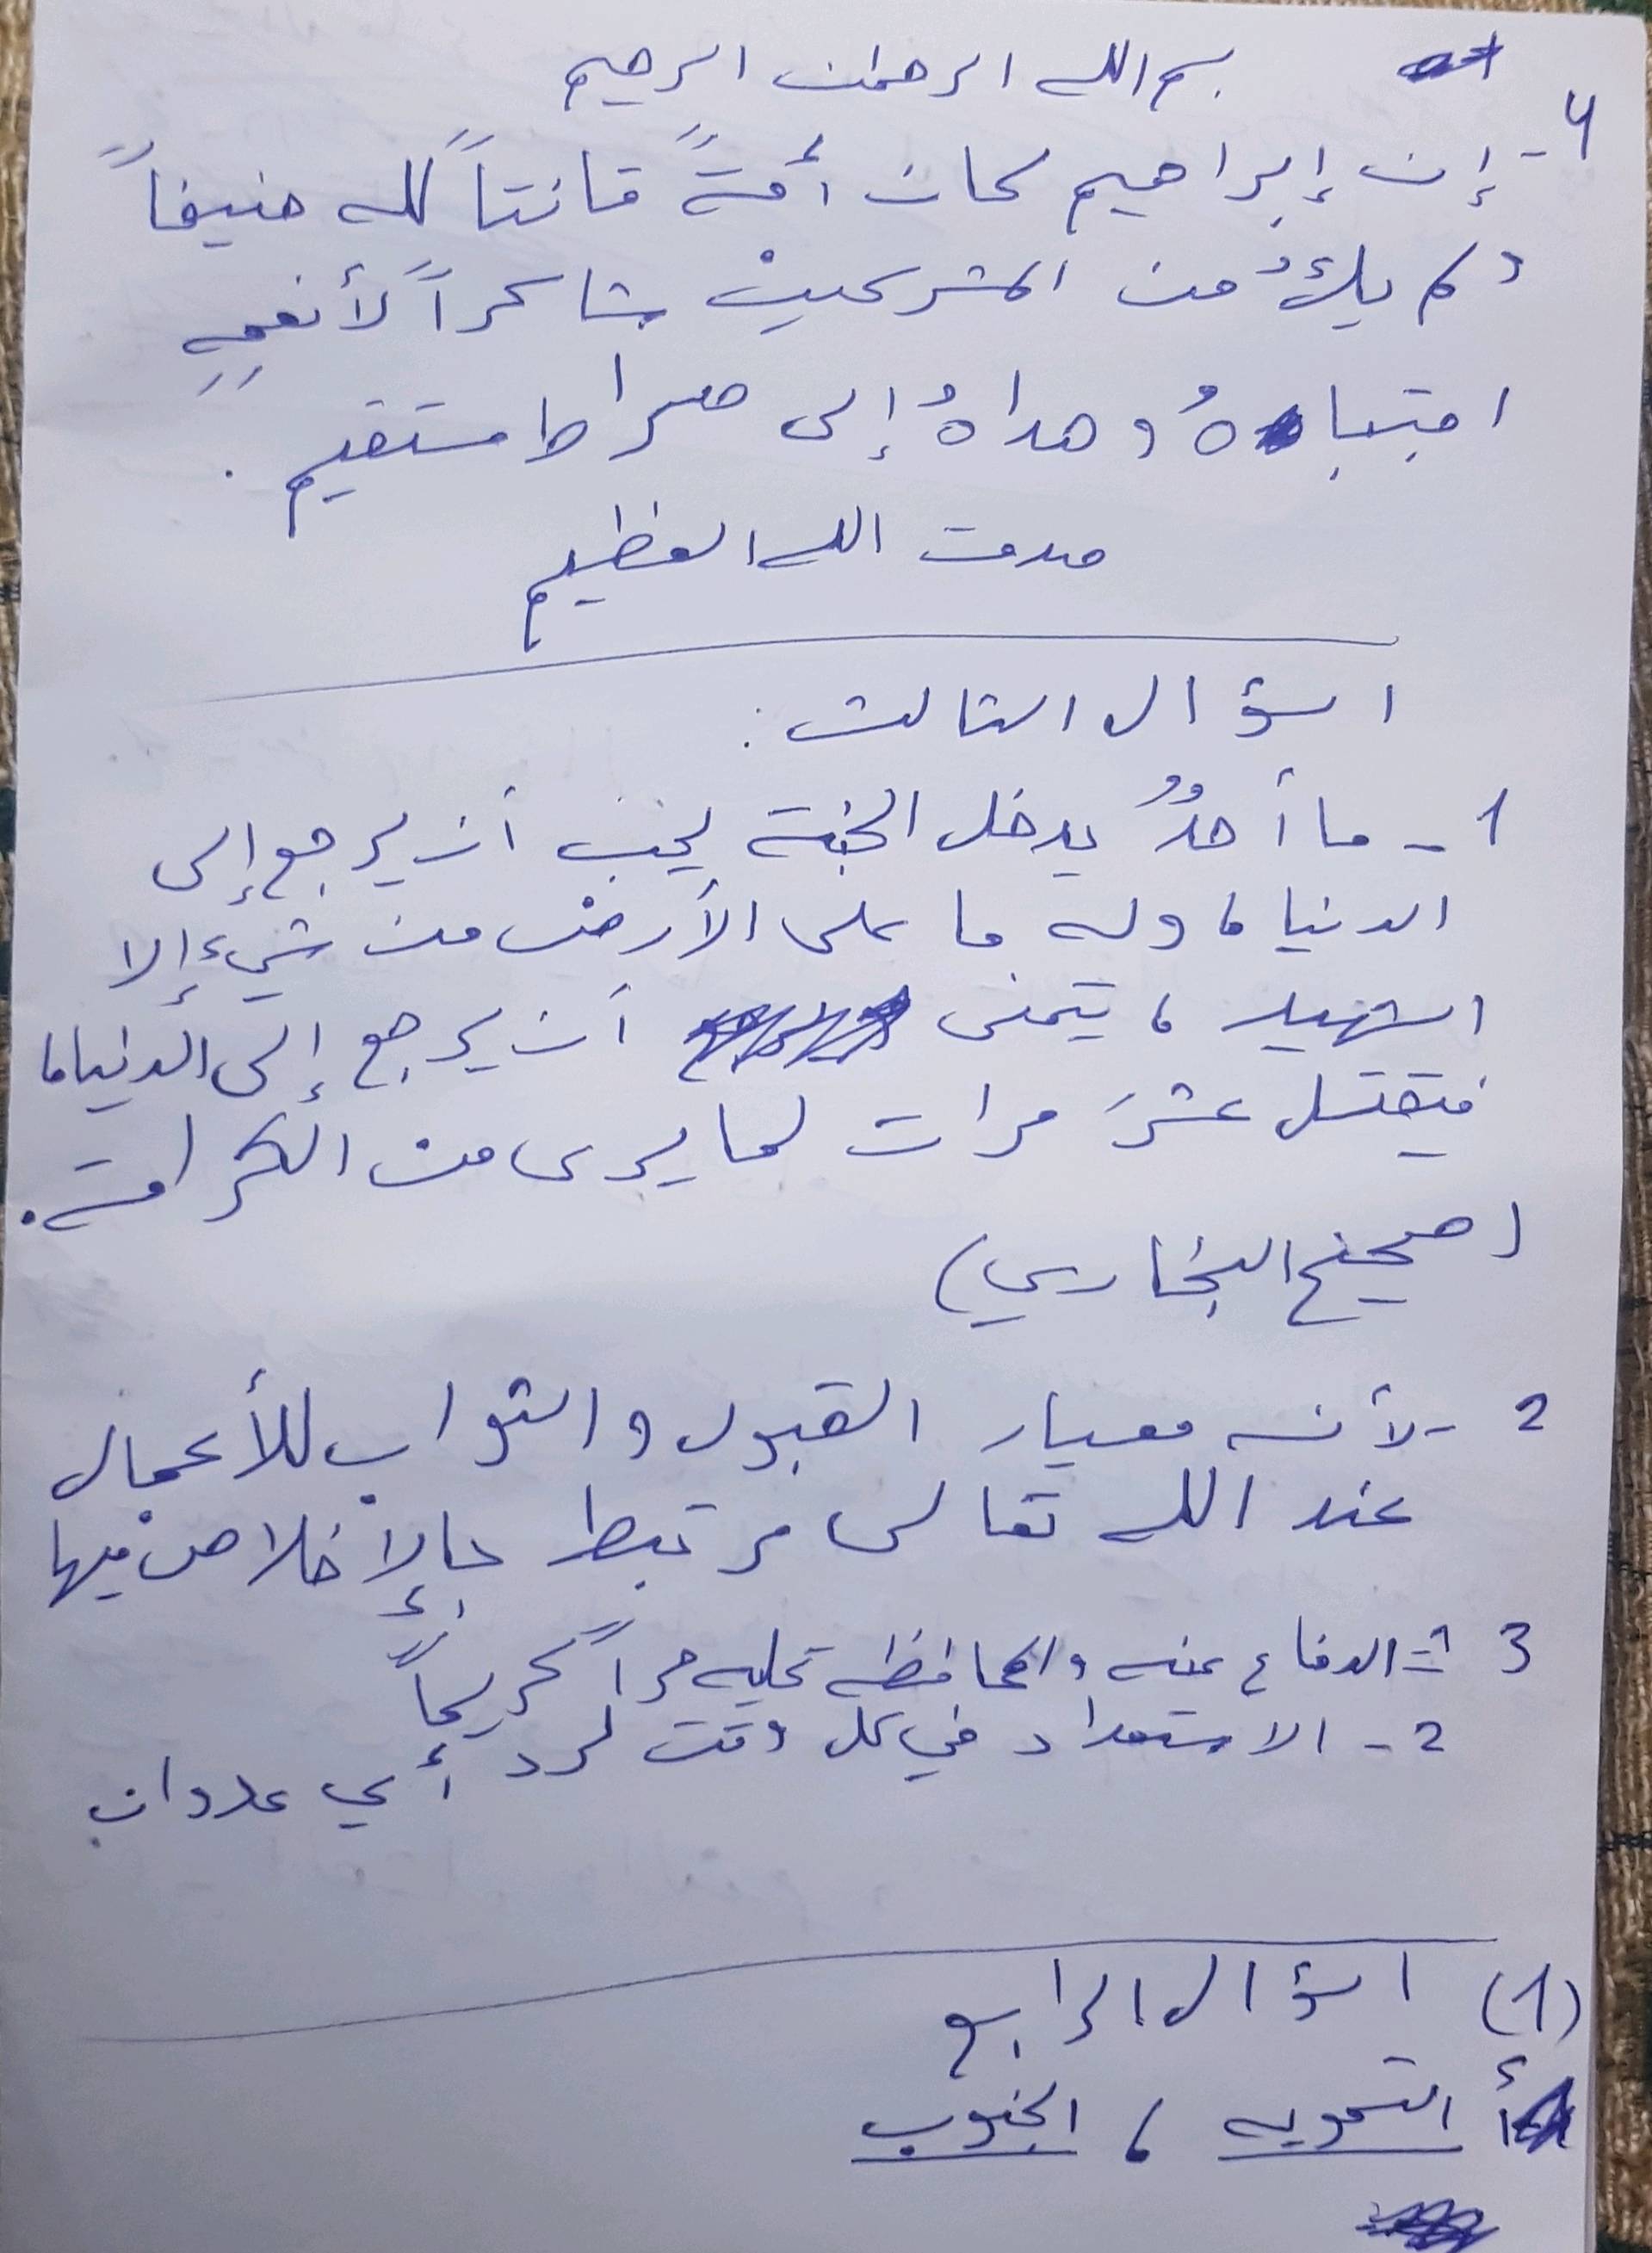 بسم الله الرحمان الرحيم
4- إن إبراهيم كان أمةً قانتاً لله حنيفاً
ولم يكُ من المشركين شاكراً لأنعمِهِ
اجتباهُ وهداهُ إلى صراط مستقيم .
صدق الله العظيم
السؤال الثالث :
1 - ما أحدٌ يدخل الجنة يحب أن يرجع إلى
الدنيا ، وله ما على الأرض من شيء إلا
الشهيد ، يتمنى أن يرجع إلى الدنيا ،
فيقتل عشرَ مرات لما يرى من الكرامة .
(صحيح البخاري)
2 - لأنه معيار القبول والثواب للأعمال
عند الله تعالى مرتبط بالإخلاص فيها
3 1- الدفاع عنه والمحافظه عليه حراً كريماً
2 - الاستعداد في كل وقت لرد أي عدوان
(1) السؤال الرابع
أ التمويه ، الجنوب